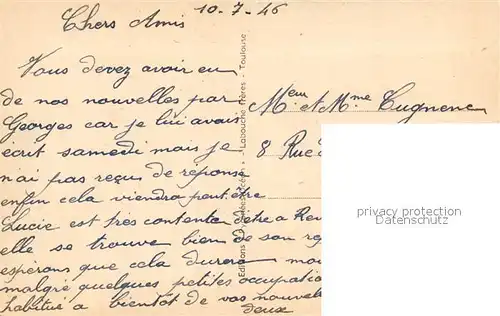 10-7-46
Chers Amis
Vous devez avoir eu
de nos nouvelles par
Georges car je lui avais
écrit samedi mais je
n'ai pas reçus de réponse
enfin cela viendra peut être
Lucie est très contente d'être a
elle se trouve bien de son
espérons que cela durera
malgré quelques petites occupatio
habitué a bientot de vos nouvel
deux
Editions Pyrénées - Labouche Frères - Toulouse
Meur et Mme Cugnenc
8 Rue
privacy protection
www.ansichtskarten-center.de